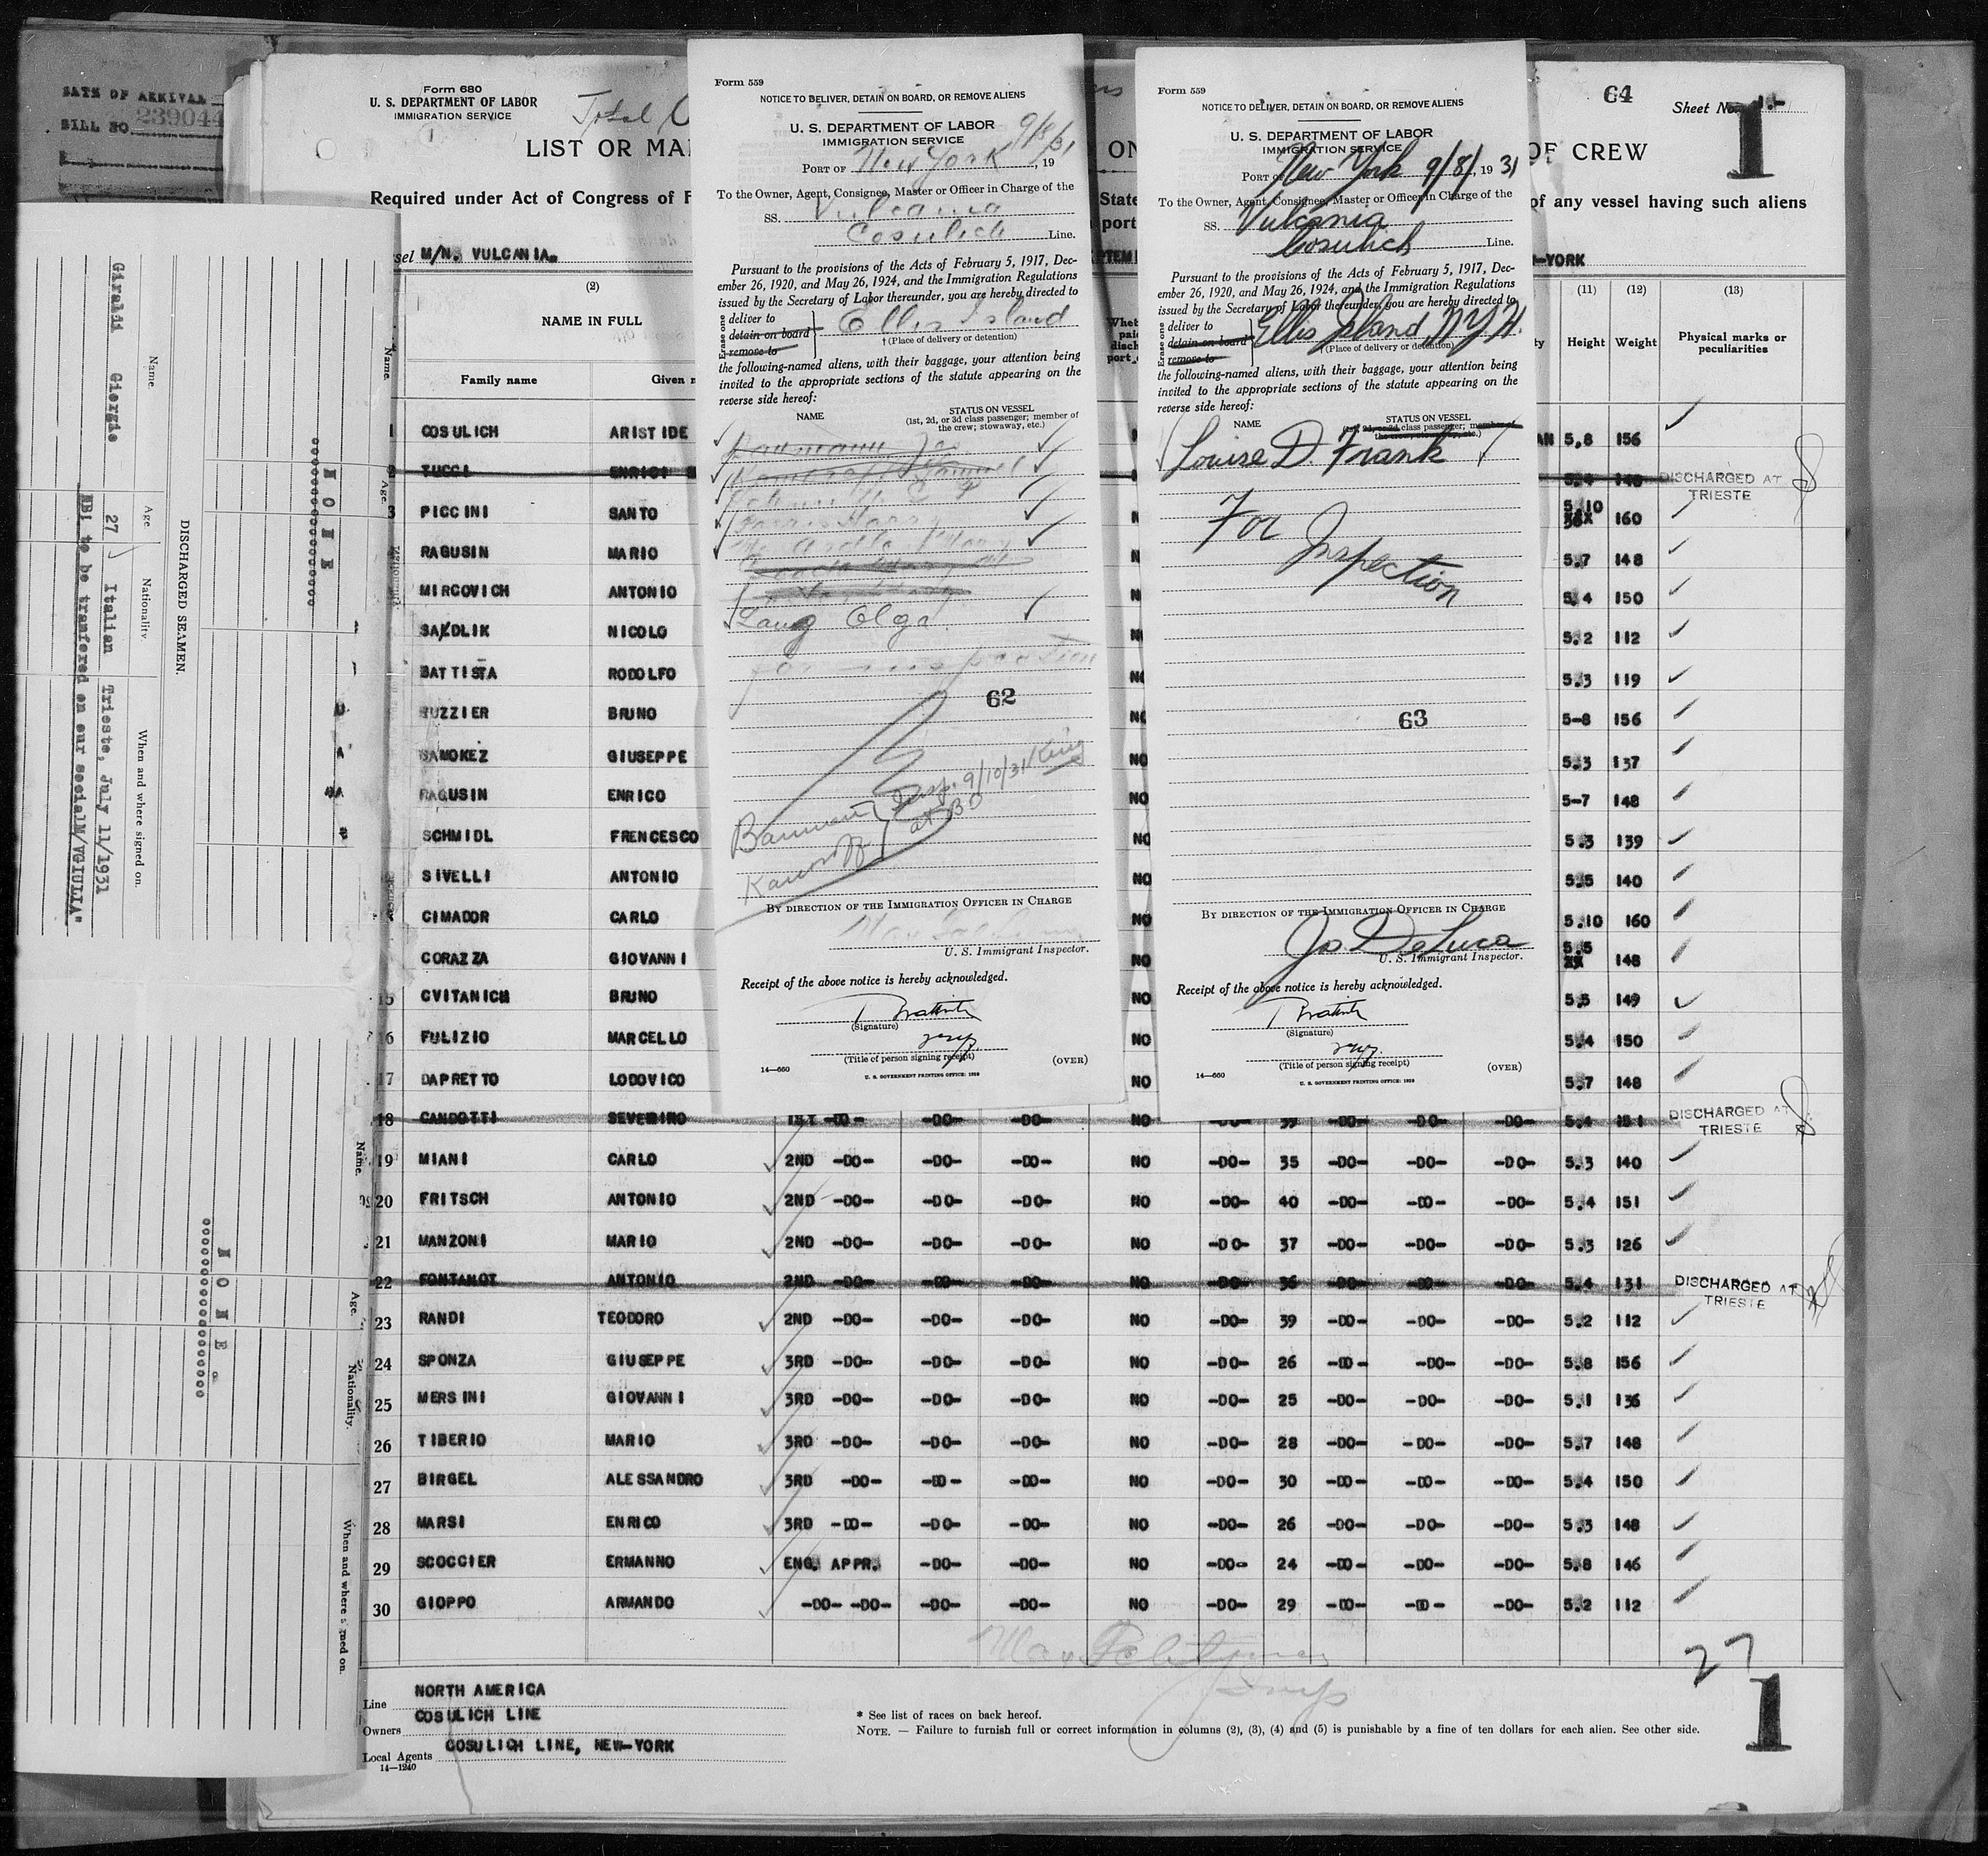 DATE OF ARRIVAL
BILL NO 239044
Form 680
U. S. DEPARTMENT OF LABOR
IMMIGRATION SERVICE
Total
LIST OR MA
ON
OF CREW
64
Sheet No. 1.-
1
Required under Act of Congress of F
State
of any vessel having such aliens
port
sel M/N. VULCANIA.
SEPTEM
-YORK
(2)
NAME IN FULL
Family name
Given n
(11)
Height
(12)
Weight
(13)
Physical marks or
peculiarities
1 COSULICH ARISTIDE 5.8 156
2 TUCCI ENRICI 5.4 148 DISCHARGED AT
TRIESTE
3 PICCINI SANTO 5.10 160
RAGUSIN MARIO 5.7 148
MIRCOVICH ANTONIO 5.4 150
SAKDLIK NICOLO 5.2 112
BATTISTA RODOLFO 5.3 119
SUZZIER BRUNO 5-8 156
SAMOKEZ GIUSEPPE 5.3 137
RAGUSIN ENRICO NO 5-7 148
SCHMIDL FRENCESCO NO 5.3 139
SIVELLI ANTONIO NO 5.5 140
CIMADOR CARLO NO 5.10 160
CORAZZA GIOVANNI NO 5.5 148
15 CVITANICH BRUNO NO 5.5 149
16 FULIZIO MARCELLO NO 5.4 150
17 DAPRETTO LODOVICO NO 5.7 148
18 CANDOTTI SEVERINO 1ST -DO- -DO- -DO- NO -DO- 39 -DO- -DO- -DO- 5.4 151 DISCHARGED AT
TRIESTE
19 MIANI CARLO 2ND -DO- -DO- -DO- NO -DO- 35 -DO- -DO- -DO- 5.3 140
20 FRITSCH ANTONIO 2ND -DO- -DO- -DO- NO -DO- 40 -DO- -DO- -DO- 5.4 151
21 MANZONI MARIO 2ND -DO- -DO- -DO- NO -DO- 37 -DO- -DO- -DO- 5.3 126
22 FONTANOT ANTONIO 2ND -DO- -DO- -DO- NO -DO- 36 -DO- -DO- -DO- 5.4 131 DISCHARGED AT
TRIESTE
23 RANDI TEODORO 2ND -DO- -DO- -DO- NO -DO- 39 -DO- -DO- -DO- 5.2 112
24 SPONZA GIUSEPPE 3RD -DO- -DO- -DO- NO -DO- 26 -DO- -DO- -DO- 5.8 156
25 MERSINI GIOVANNI 3RD -DO- -DO- -DO- NO -DO- 25 -DO- -DO- -DO- 5.1 136
26 TIBERIO MARIO 3RD -DO- -DO- -DO- NO -DO- 28 -DO- -DO- -DO- 5.7 148
27 BIRGEL ALESSANDRO 3RD -DO- -DO- -DO- NO -DO- 30 -DO- -DO- -DO- 5.4 150
28 MARSI ENRICO 3RD -DO- -DO- -DO- NO -DO- 26 -DO- -DO- -DO- 5.3 148
29 SCOCCIER ERMANNO ENG. APPR. -DO- -DO- NO -DO- 24 -DO- -DO- -DO- 5.8 146
30 GIOPPO ARMANDO -DO- -DO- -DO- -DO- NO -DO- 29 -DO- -DO- -DO- 5.2 112
27
1
Line NORTH AMERICA
Owners COSULICH LINE
Local Agents COSULICH LINE, NEW-YORK
14—1240
* See list of races on back hereof.
NOTE. — Failure to furnish full or correct information in columns (2), (3), (4) and (5) is punishable by a fine of ten dollars for each alien. See other side.
Form 559
NOTICE TO DELIVER, DETAIN ON BOARD, OR REMOVE ALIENS
U. S. DEPARTMENT OF LABOR
IMMIGRATION SERVICE
PORT OF New York 9/8/31, 19
To the Owner, Agent, Consignee, Master or Officer in Charge of the
SS. Vulcania
Cosulich Line.
Pursuant to the provisions of the Acts of February 5, 1917, Dec-
ember 26, 1920, and May 26, 1924, and the Immigration Regulations
issued by the Secretary of Labor thereunder, you are hereby directed to
Erase one
deliver to
detain on board
remove to
Ellis Island
† (Place of delivery or detention)
the following-named aliens, with their baggage, your attention being
invited to the appropriate sections of the statute appearing on the
reverse side hereof:
NAME
STATUS ON VESSEL
(1st, 2d, or 3d class passenger; member of
the crew; stowaway, etc.)
Lang Olga
for inspection
62
Insp. 9/10/31 King
BY DIRECTION OF THE IMMIGRATION OFFICER IN CHARGE
U. S. Immigrant Inspector.
Receipt of the above notice is hereby acknowledged.
(Signature)
(Title of person signing receipt)
(OVER)
14—660
U. S. GOVERNMENT PRINTING OFFICE: 1929
Form 559
NOTICE TO DELIVER, DETAIN ON BOARD, OR REMOVE ALIENS
U. S. DEPARTMENT OF LABOR
IMMIGRATION SERVICE
PORT OF New York 9/8/, 1931
To the Owner, Agent, Consignee, Master or Officer in Charge of the
SS. Vulcania
Cosulich Line.
Pursuant to the provisions of the Acts of February 5, 1917, Dec-
ember 26, 1920, and May 26, 1924, and the Immigration Regulations
issued by the Secretary of Labor thereunder, you are hereby directed to
Erase one
deliver to
detain on board
remove to
Ellis Island, N.Y.H.
† (Place of delivery or detention)
the following-named aliens, with their baggage, your attention being
invited to the appropriate sections of the statute appearing on the
reverse side hereof:
NAME
STATUS ON VESSEL
(1st, 2d, or 3d class passenger; member of
the crew; stowaway, etc.)
Louise D. Frank
For
Inspection
63
BY DIRECTION OF THE IMMIGRATION OFFICER IN CHARGE
Jos DeLuca
U. S. Immigrant Inspector.
Receipt of the above notice is hereby acknowledged.
(Signature)
(Title of person signing receipt)
(OVER)
14—660
U. S. GOVERNMENT PRINTING OFFICE: 1929
DISCHARGED SEAMEN.
Name. Age. Nationality. When and where signed on.
Giraldi Giorgio 27 Italian Trieste, July 11/1931
AB! to be tranfered on our socialM/VGIULIA"
Name. Age.
NONE
Name. Age. Nationality. When and where signed on.
NONE.